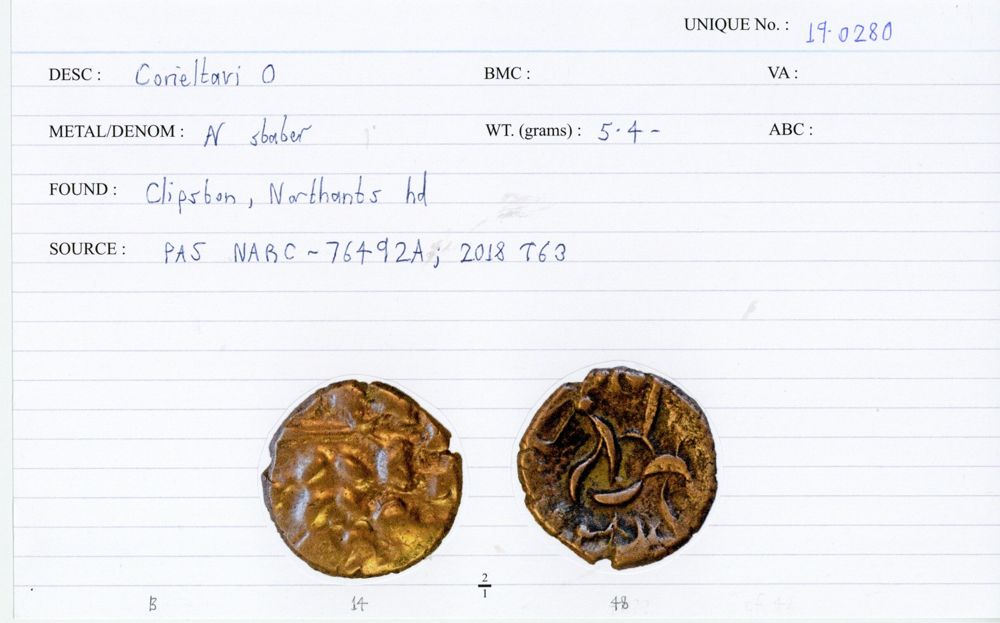 UNIQUE No. : 19.0280
DESC : Corieltavi O BMC : VA :
METAL/DENOM : N stater WT. (grams) : 5.4 - ABC :
FOUND : Clipston, Northants hd
SOURCE : PAS NARC-76492A; 2018 T63
2
1
B 14 48